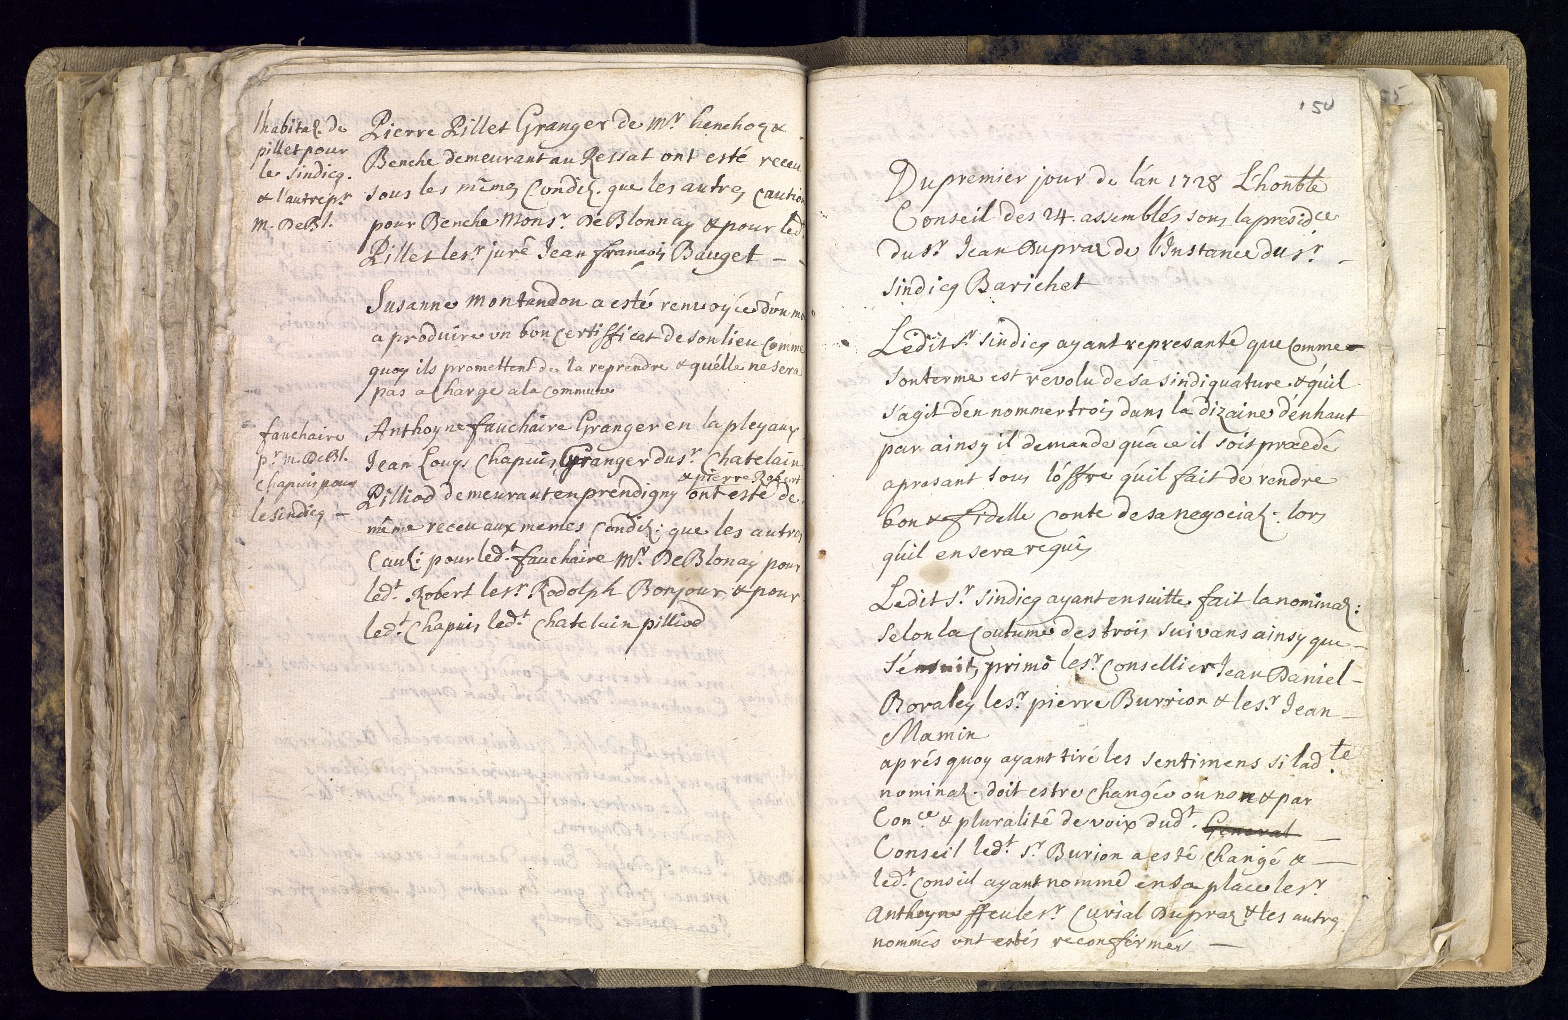 l'habitaõn de
pillet pour
le sindicq.
& l'autre pr.
m. DeBl.
Pierre Pillet Granger de Mr. henchoz &
Benche demeurant au Ressat ont esté receu
sous les mêmes Condiõn. que les autres, cautio
pour Benche Monsr. DeBlonnay & pour led.
Pillet le sr. juré Jean françois Bauget —
Susanne montandon a esté renvoyée d'un mo
a produire vn bon certifficat de son lieu Comme
quoy ils promettent de la reprendre & quélle ne sera
pas a Charge a la commune
fauchaire
pr. m. DeBl.
Chapuis pour
le sindicq —
Anthoyne fauchaire Granger en la pleyaux
Jean Louys Chapuis, Granger du sr. Chatelain
& pierre Robert
Pilliod demeurant en prendigny ont esté de
même receu aux mêmes Condiõn: que les autres
Cauõn: pour led.t fauchaire Mr. DeBlonay pour
led.t Robert le sr. Rodolph Bonjour & pour
led.t Chapuis led.t Chatelain pilliod
150
Du premier jour de lán 1728 L'honble
Conseil des 24. assemblés sous la presidce
du sr. Jean Dupraz de l'Instance du sr.
sindicq Barichet
Ledit sr. sindicq ayant represanté que Comme
son terme est révolu de sa sindiquature & quíl
s'agit dén nommer trois dans la dizaine dénhaut
par ainsy il demande quá ce il sois procedé
apresant sous lóffre quíl fait de rendre
bon & fidelle Conte de sa negociaõn. lors
quíl en sera requis
Ledit sr. sindicq ayant ensuitte fait la nominaõn:
selon la Coutume des trois suivans ainsy que
s'énsuit, primô le sr. Consellier Jean Daniel
Rovaley le sr. pierre Burrion & le sr. Jean
Mamin
aprés quoy ayant tiré les sentimens si lad.te
nominaõn. doit estre changée ou non & par
Conce & pluralité de voix dud.t General
Conseil led.t sr. Burion a esté changé &
led.t Conseil ayant nommé en sa place le sr.
Anthoyne ffeu le sr. Curial Dupraz & les autres
nommés ont estés reconfirmés —